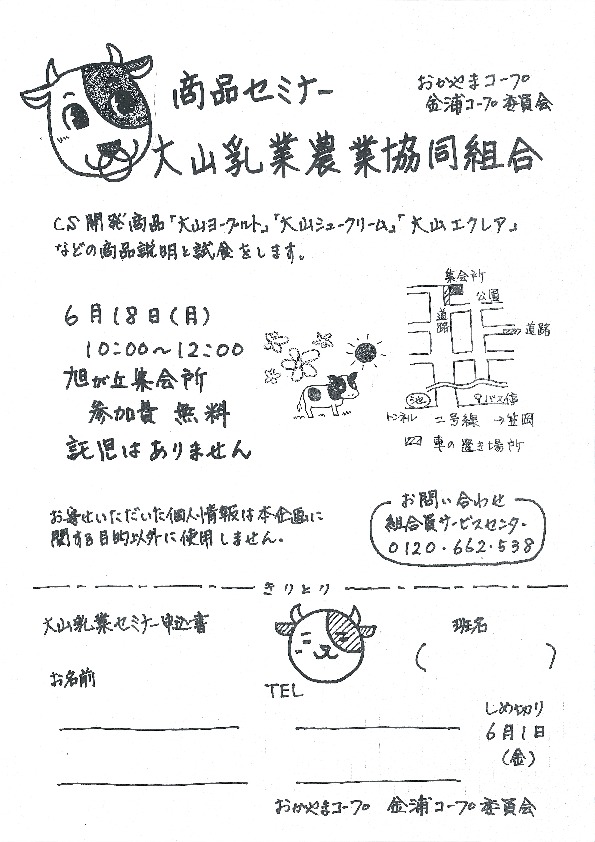 商品セミナー
おかやまコープ
金浦コープ委員会
大山乳業農業協同組合
CS開発商品「大山ヨーグルト」「大山シュークリーム」「大山エクレア」
などの商品説明と試食をします。
6月18日(月)
10:00〜12:00
旭が丘集会所
参加費 無料
託児はありません
集会所
公園
道路
道路
池
バス停
トンネル 二号線 →笠岡
車の置き場所
お寄せいただいた個人情報は本企画に
関する目的以外に使用しません。
お問い合わせ
組合員サービスセンター
0120・662・538
きりとり
大山乳業セミナー申込書
班名
( )
お名前
TEL
しめ切り
6月1日
(金)
おかやまコープ 金浦コープ委員会